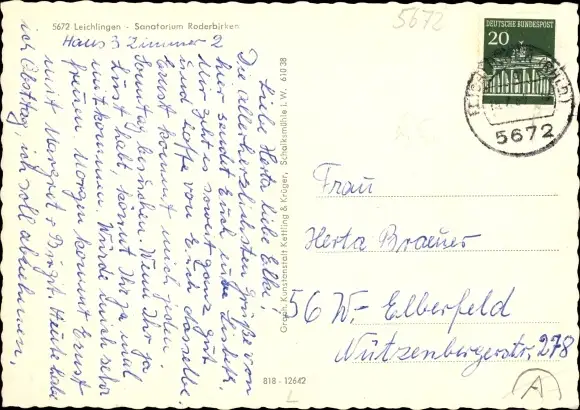 5672 Leichlingen - Sanatorium Roderbirken
Haus 3 Zimmer 2
Liebe Herta liebe Elke,
Die allerherzlichsten Grüße von
hier sendet Euch eure
Mir geht es soweit ganz gut
und hoffe von Euch dasselbe,
Ernst kommt mich jeden
Sonntag besuchen. Wenn Ihr ja
Lust habt, könnt Ihr ja mal
mitkommen. Würde mich sehr
freuen Morgen kommt Ernst
mit Margret + Birgit. Heute habe
ich Obsttag, ich soll abnehmen,
Graph. Kunstanstalt Kettling & Krüger, Schalksmühle i. W. 610 38
818 - 12642
5672
DEUTSCHE BUNDESPOST
20
5672
Frau
Herta Braeuer
56 W.- Elberfeld
Nützenbergerstr. 278
A